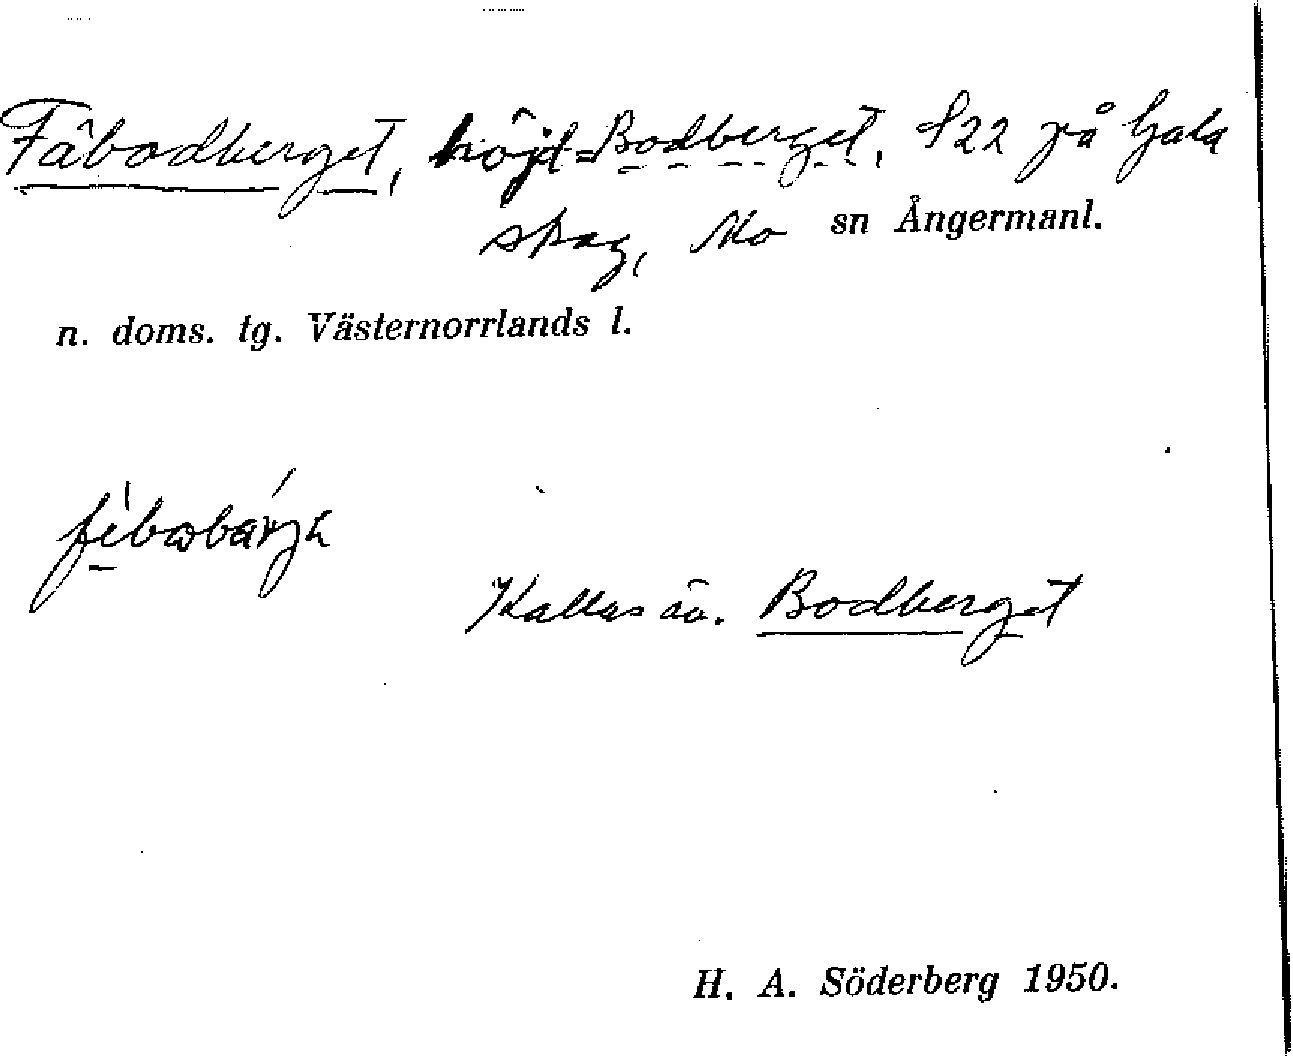 Fäbodberget, höjd = Bodberget, S22 på Gala
skog, Mo sn Ångermanl.
n. doms. tg. Västernorrlands l.
Kallas äv. Bodberget
H. A. Söderberg 1950.